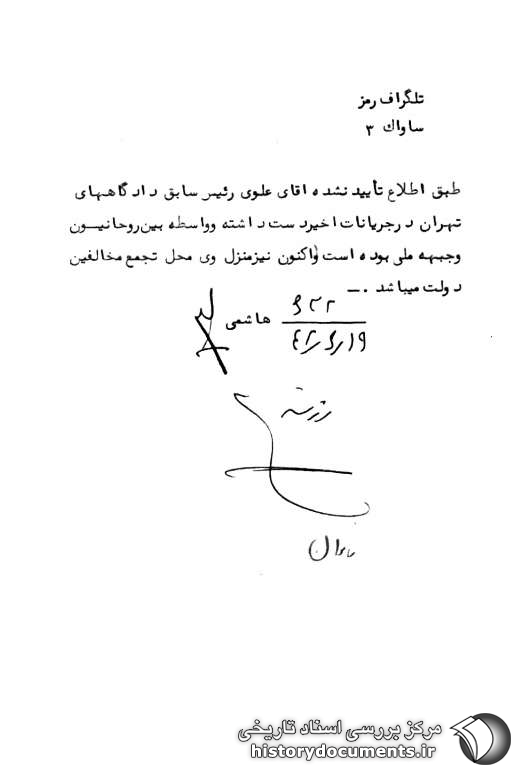 تلگراف رمز
ساواک ۳
طبق اطلاع تأیید نشده اقای علوی رئیس سابق دادگاههای
تهران در جریانات اخیر دست داشته و واسطه بین روحانیون
و جبهه ملی بوده است و اکنون نیز منزل وی محل تجمع مخالفین
دولت میباشد .ــ
هاشمی ۹۲۲
۴۲/۹/۱۹
مرکز بررسی اسناد تاریخی
historydocuments.ir